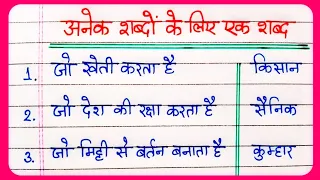 अनेक शब्दों के लिए एक शब्द
1. जो खेती करता है किसान
2. जो देश की रक्षा करता है सैनिक
3. जो मिट्टी से बर्तन बनाता है कुम्हार